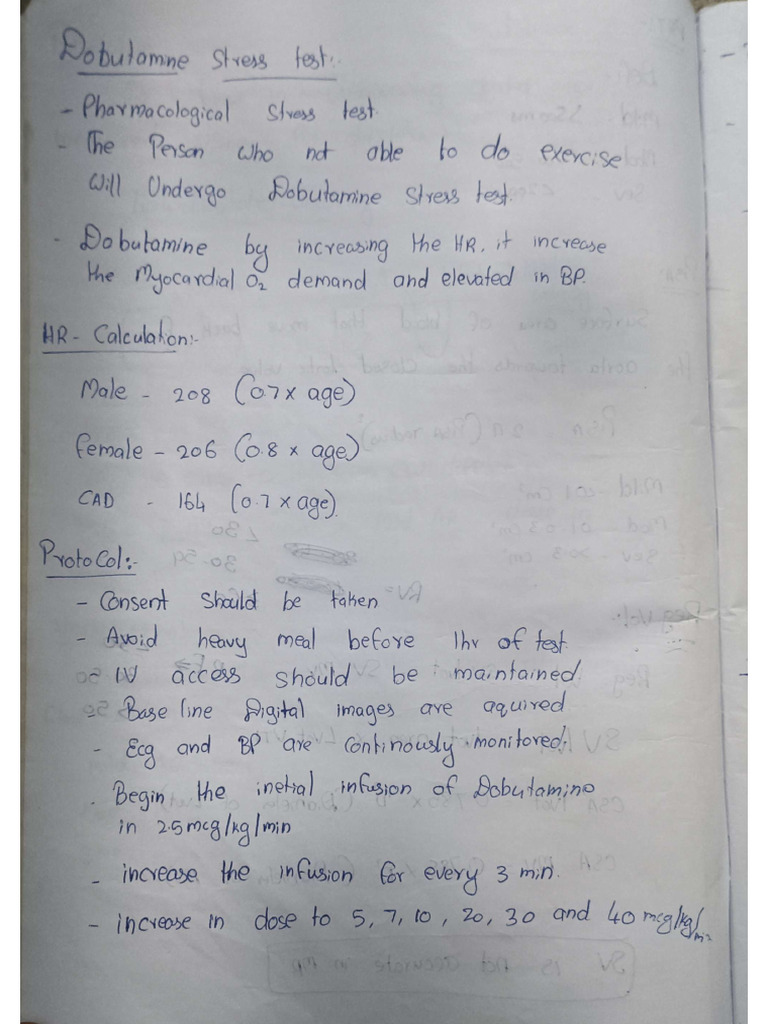 Dobutamne Stress test:-
- Pharmacological Stress test.
- The Person who not able to do exercise
Will Undergo Dobutamine Stress test.
- Dobutamine by increasing the HR, it increase
the Myocardial O2 demand and elevated in BP.
HR - Calculation:-
Male - 208 (0.7 x age)
Female - 206 (0.8 x age)
CAD - 164 (0.7 x age).
Protocol:-
- Consent should be taken
- Avoid heavy meal before 1hr of test
- IV access should be maintained.
- Base line Digital images are aquired
- Ecg and BP are continously monitored.
- Begin the inetial infusion of Dobutamine
in 2.5 mcg/kg/min
- increase the infusion for every 3 min.
- increase in dose to 5, 7, 10, 20, 30 and 40 mcg/kg/min